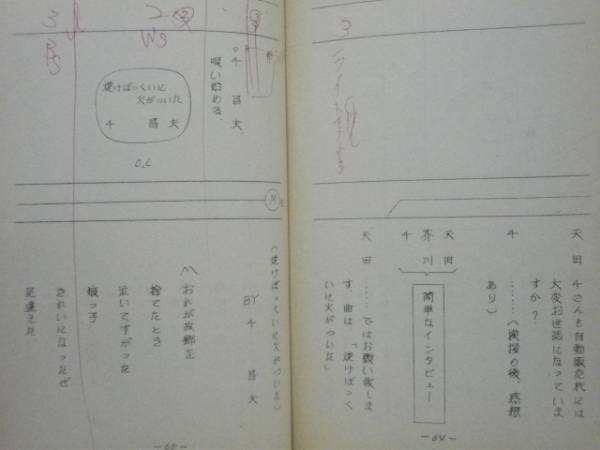 3
天田 千さんも自動販売機には
大変お世話になっていま
すか?
千 ……(挨拶の後、感想
あり)
天田
芥川
千
簡単なインタビュー
天田 ……ではお願い致しま
す、曲は、「焼けぼっく
いに火がついた」
-64-
2
WS
3
○千 昌夫、
唄い始める。
焼けぼっくいに
火がついた
千 昌夫
O.L
M
(焼けぼっくいに火がついた)
BY 千 昌夫
おれが故郷を
捨てたとき
泣いてすがった
娘っ子
きれいになったぜ
見違えた
-65-